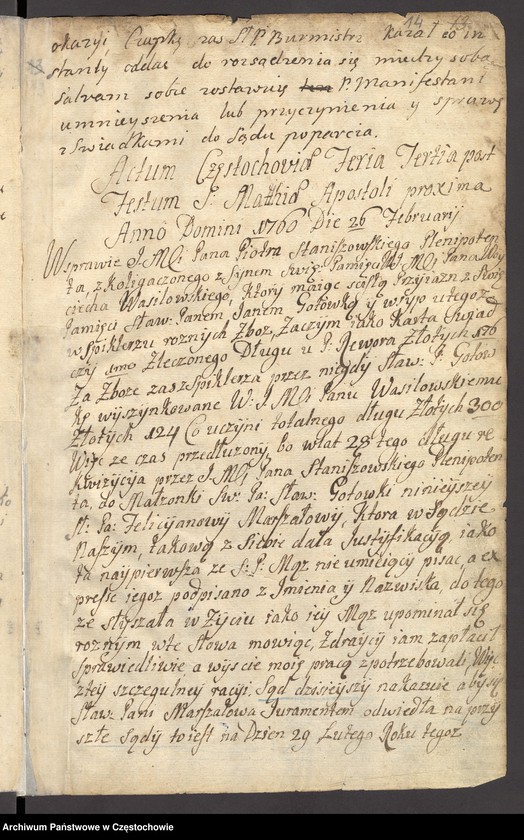 14
okazyi, Czapkę zas St: P: Burmistrz kazał co in
stanti oddać do rozsądzenia się między sobą
salvam sobie zostawuię P. Manifestant
umnieyszenia lub przyczynienia y sprawę
z Swiadkami do Sądu poparcia.
Actum Częstochoviæ Feria Tertia post
Festum S: Mathiæ Apostoli proxima
Anno Domini 1760 Die 26 Februarij
W sprawie I. M Pana Piotra Staniszowskiego Plenipoten
ta, z koligaconego z Synem Swię: Pamięci I M Pana Woy
ciecha Wasilowskiego, ktory maiąc scisłą Przyiazn z Swię:
Pamięci Sław: Panem Janem Gotowką y wsyp u tegoż
w Spiklerzu roznych Zboz, Zaczym iako Karta Swiad
czy 1mo Zleczonego Długu u P: Jewora Złotych 176
Za Zboże zas z Spiklerza przez niegdy Sław: P: Gotow
kę wyszynkowane W: I M Panu Wasilowskiemu
Złotych 124 Co uczyni totalnego długu Złotych 300
Więc ze czas przedłuzony, bo w lat 28 tego długu re
kwizycija przez I. M Pana Staniszowskiego Plenipoten
ta, do Małzonki Sw: Pa: Sław: Gotowki ninieyszey
St: Pa: Felicijanowy Marszałowij, Ktora w Sądzie
Naszym, takową z Siebie dała Justyfikacyią, iako
ta nayпierwsza ze S: P: Mąz nie umieiący pisac, a ex
presse iegoz podpisano z Imienia y Nazwiska, do tego
ze słyszała w Zyciu iako iey Mąz upominał się
roznym, w te słowa mowiąc, Zdraycy iam zapłacił
Sprawiedliwie, a wyscie moię pracą zpotrzebowali, Więc
z tey szczegulney racyi, Sąd dzisieyszy nakazuie aby się
Sław: Pani Marszałowa Juramentem odwiedła na przy
szłe Sądy to iest na Dzien 29 Lutego Roku tegoz
Archiwum Państwowe w Częstochowie